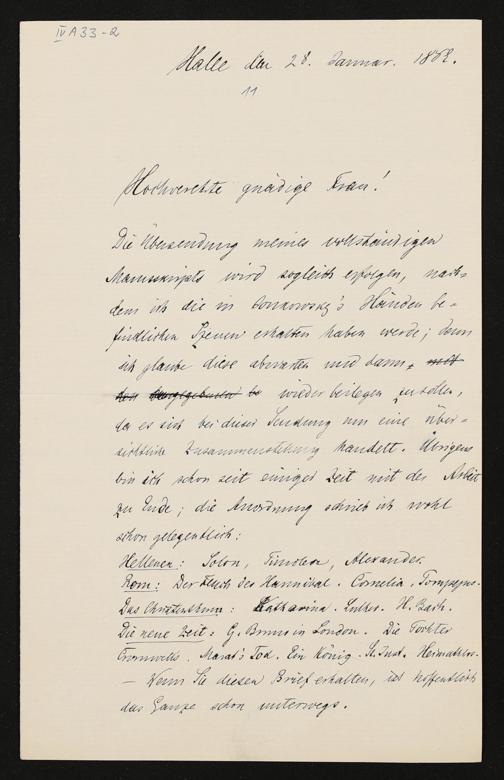 IV A 33-2
Halle den 28. Januar. 188
11
Hochverehrte gnädige Frau!
Die Übersendung meines vollständigen
Manuskripts wird sogleich erfolgen, nach-
dem ich die in Händen be-
findlichen Szenen erhalten haben werde; denn
ich glaube diese abwarten und dann,
wieder beilegen zu sollen,
da es sich bei dieser Sendung um eine über-
sichtliche Zusammenstellung handelt. Übrigens
bin ich schon seit einiger Zeit mit der Arbeit
zu Ende; die Anordnung schrieb ich wohl
schon gelegentlich:
Hellenen: Solon, Timoleon, Alexander.
Rom: Der Fluch des Hannibal. Cornelia. Pompejus.
Das Christenthum: Katharina. Luther. H. Bach.
Die neue Zeit: G. Bruno in London. Die Tochter
Cromwells. Marat's Tod. Ein König. St. Just. Heimathlos.
— Wenn Sie diesen Brief erhalten, ist hoffentlich
das Ganze schon unterwegs.